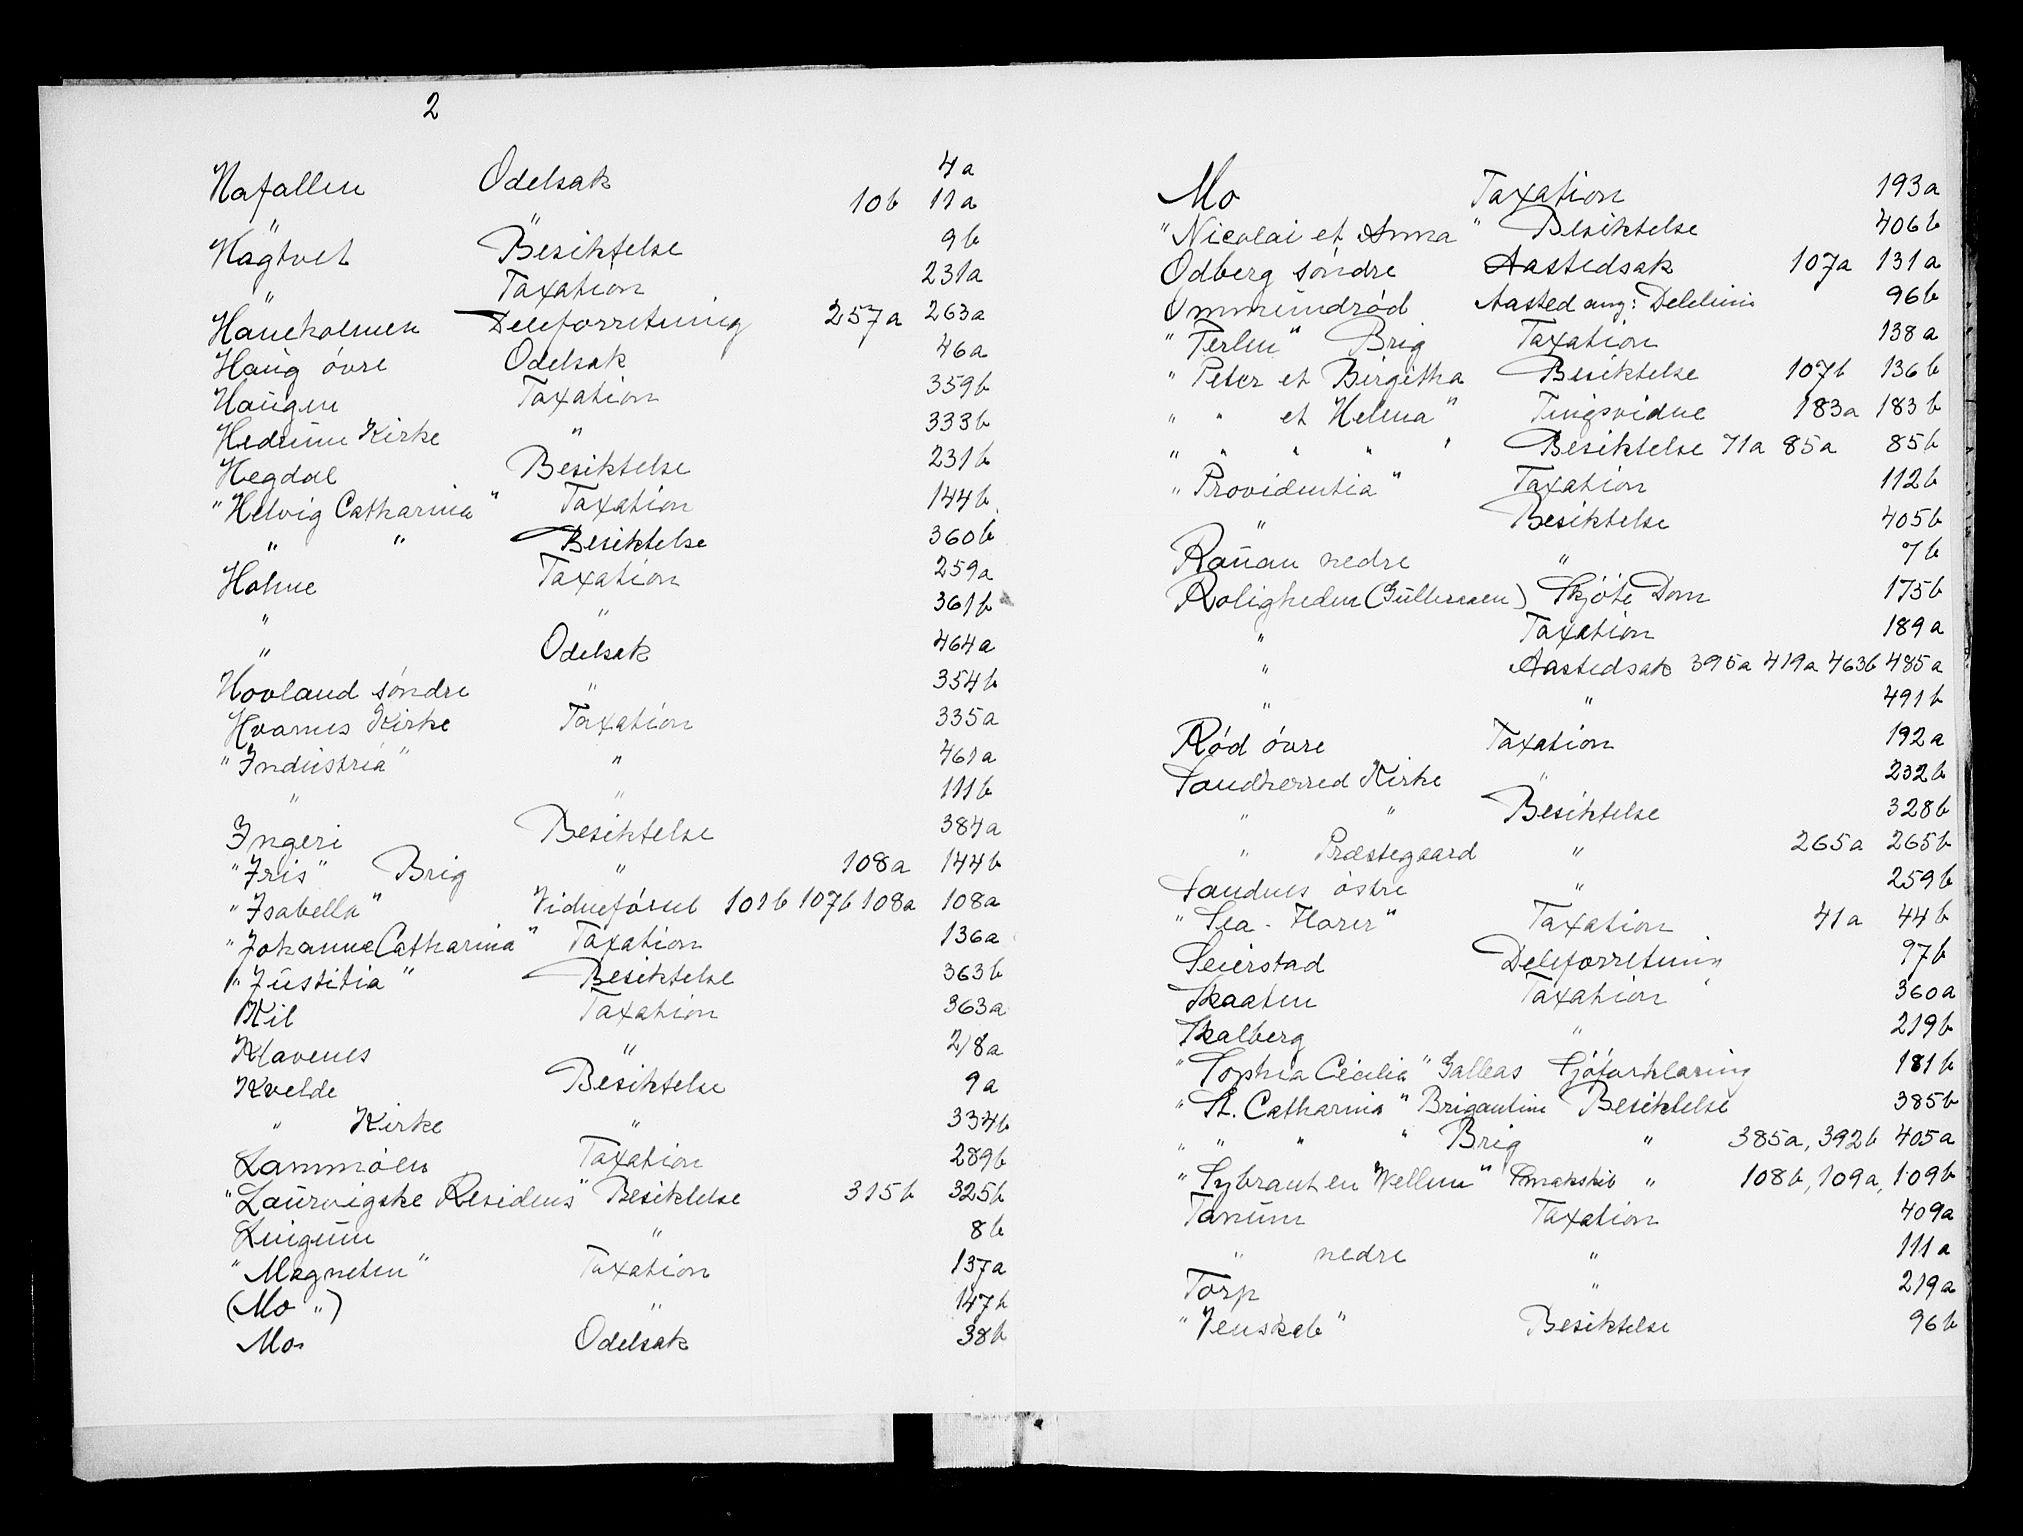 2
Hafallen Odelsak 4a
" " 10b 11a
Hagtvet Besiktelse 9b
" Taxation 231a
Haneholmen Deleforretning 257a 263a
Haug övre Odelsak 46a
Haugen Taxation 359b
Hedrum Kirke " 333b
Hegdal Besiktelse 231b
"Helvig Catharina" Taxation 144b
" " Besiktelse 360b
Holme Taxation 259a
" " 361b
" Odelsak 464a
Hovland söndre " 354b
Hvarnes Kirke Taxation 335a
"Industria" " 461a
" " 111b
Ingeri Besiktelse 384a
"Iris" Brig " 108a 144b
"Isabella" Vidneförsel 101b 107b 108a 108a
"Johanne Catharina" Taxation 136a
"Justitia" Besiktelse 363b
Kil Taxation 363a
Klavenes " 218a
Kvelde Besiktelse 9a
" Kirke " 334b
Lammöen Taxation 289b
"Laurvigske Residens" Besiktelse 315b 325b
Lingum " 8b
"Magneten" Taxation 137a
(Mo ") " 147b
Mo Odelsak 38b
Mo Taxation 193a
"Nicolai et Anna" Besiktelse 406b
Odberg söndre Aastedsak 107a 131a
Ommundröd Aasted ang: Delelinie 96b
"Perlen" Brig Taxation 138a
"Peter et Birgitha Besiktelse 107b 136b
" " et Helena" Tingsvidne 183a 183b
" " " " " Besiktelse 71a 85a 85b
"Providentia" Taxation 112b
" Besiktelse 405b
Rauan nedre " 7b
Roligheden (Gullersaen) Skjöte Dom 175b
" Taxation 189a
" Aastedsak 395a 419a 463b 485a
" " 491b
Röd övre Taxation 192a
Sandherred Kirke " 232b
" " Besiktelse 328b
" Præstegaard " 265a 265b
Sandnes östre " 259b
"Sea-Horse" Taxation 41a 44b
Seierstad Deleforretning 97b
Skaaten Taxation 360a
Skalberg " 219b
"Sophia Cecilia" Galleas Sjöforklaring 181b
"St. Catharina" Brigantin Besiktelse 385b
" " " " Brig " 385a, 392b 405a
"Sybrant en Wellem" Smakskib " 108b, 109a, 109b
Tanum Taxation 409a
" nedre " 111a
Torp " 219a
"Venskab" Besiktelse 96b